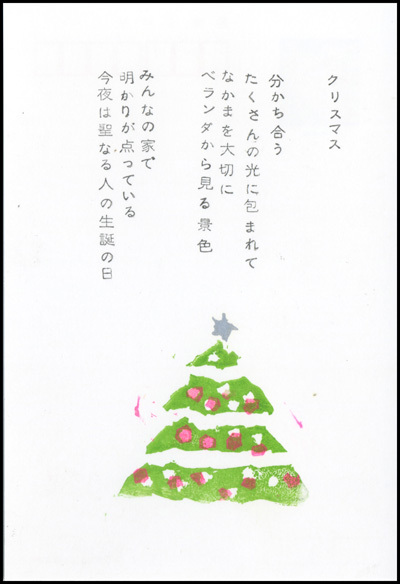 クリスマス
分かち合う
たくさんの光に包まれて
なかまを大切に
ベランダから見る景色
みんなの家で
明かりが点っている
今夜は聖なる人の生誕の日